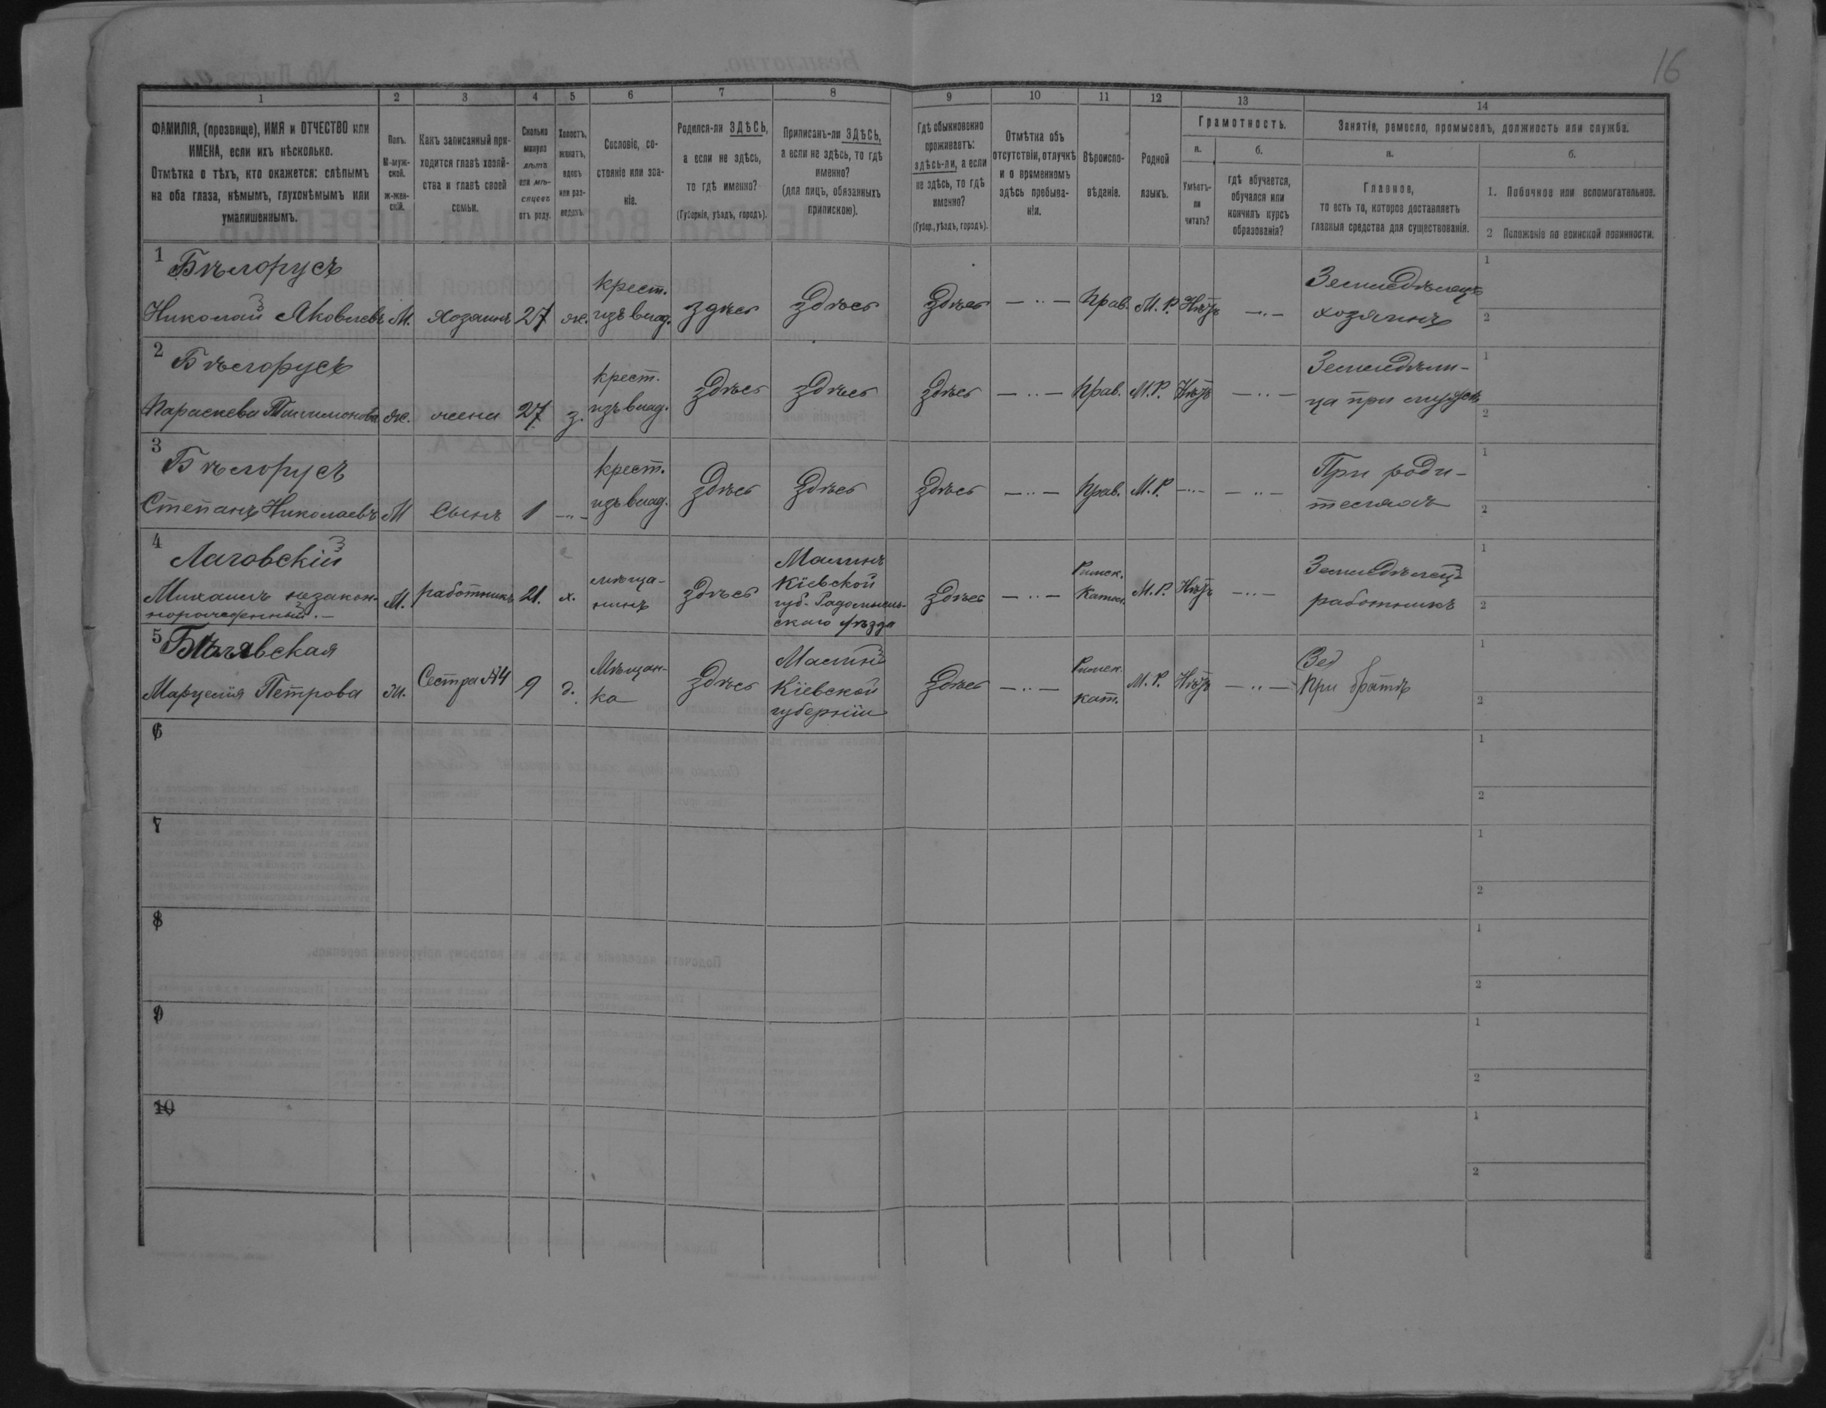 16
1 2 3 4 5 6 7 8 9 10 11 12 13 14
ФАМИЛІЯ, (прозвище), ИМЯ и ОТЧЕСТВО или
ИМЕНА, если ихъ нѣсколько.
Отмѣтка о тѣхъ, кто окажется: слѣпымъ
на оба глаза, нѣмымъ, глухонѣмымъ или
умалишеннымъ.
Полъ.
М-муж-
ской.
ж-жен-
скій.
Какъ записанный при-
ходится главѣ хозяй-
ства и главѣ своей
семьи.
Сколько
минуло
лѣтъ
или мѣ-
сяцевъ
отъ роду.
Холостъ,
женатъ,
вдовъ
или раз-
веденъ.
Сословіе, со-
стояніе или зва-
ніе.
Родился-ли ЗДѢСЬ,
а если не здѣсь,
то гдѣ именно?
(Губернія, уѣздъ, городъ).
Приписанъ-ли ЗДѢСЬ,
а если не здѣсь, то гдѣ
именно?
(для лицъ, обязанныхъ
припискою).
Гдѣ обыкновенно
проживаетъ:
здѣсь-ли, а если
не здѣсь, то гдѣ
именно?
(Губер., уѣздъ, городъ).
Отмѣтка объ
отсутствіи, отлучкѣ
и о временномъ
здѣсь пребыва-
ніи.
Вѣроиспо-
вѣданіе.
Родной
языкъ.
Грамотность.
а.
Умѣетъ-
ли
читать?
б.
гдѣ обучается,
обучался или
кончилъ курсъ
образованія?
Занятіе, ремесло, промыселъ, должность или служба.
а.
Главное,
то есть то, которое доставляетъ
главныя средства для существованія.
б.
1. Побочное или вспомогательное.
2 Положеніе по воинской повинности.
1 Бѣлорусъ
Николай Яковлевъ М. хозяинъ 27 ж. крест. изъ влад. здѣсь здѣсь здѣсь — ·· — Прав. М. Р. Нѣтъ — ·· — Земледѣлецъ
хозяинъ
1
2
2 Бѣлорусъ
Параскева Тихимонова ж. жена 27 з. крест. изъ влад. здѣсь здѣсь здѣсь — ·· — Прав. М. Р. Нѣтъ — ·· — Земледѣли-
ца при мужѣ
1
2
3 Бѣлорусъ
Степанъ Николаевъ М сынъ 1 — ·· — крест. изъ влад. здѣсь здѣсь здѣсь — ·· — Прав. М. Р. — ·· — — ·· — При роди-
теляхъ
1
2
4 Лаговскій
Михаилъ незакон-
норожденный. — М. работникъ 21. х. мѣща-
нинъ здѣсь Малинъ
Кіевской
губ. Радомысль-
скаго уѣзда здѣсь — ·· — Римск.
Катол. М. Р. Нѣтъ — ·· — Земледѣлецъ
работникъ
1
2
5 Бѣлявская
Марцелія Петрова ж. Сестра №4 9 д. Мѣщан-
ка здѣсь Малинъ
Кіевской
губерніи здѣсь — ·· — Римск.
кат. М. Р. Нѣтъ — ·· — При братѣ
1
2
6
1
2
7
1
2
8
1
2
9
1
2
10
1
2